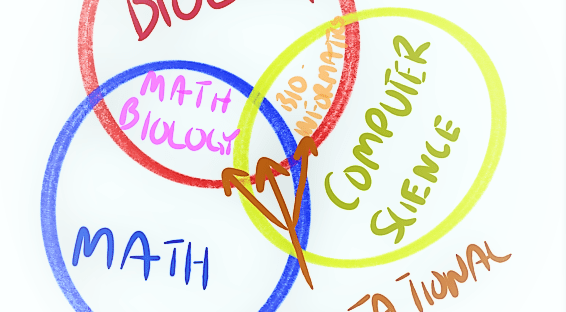 MATH
BIOLOGY
BIO-
INFORMATICS
COMPUTER
SCIENCE
MATH
TATIONAL